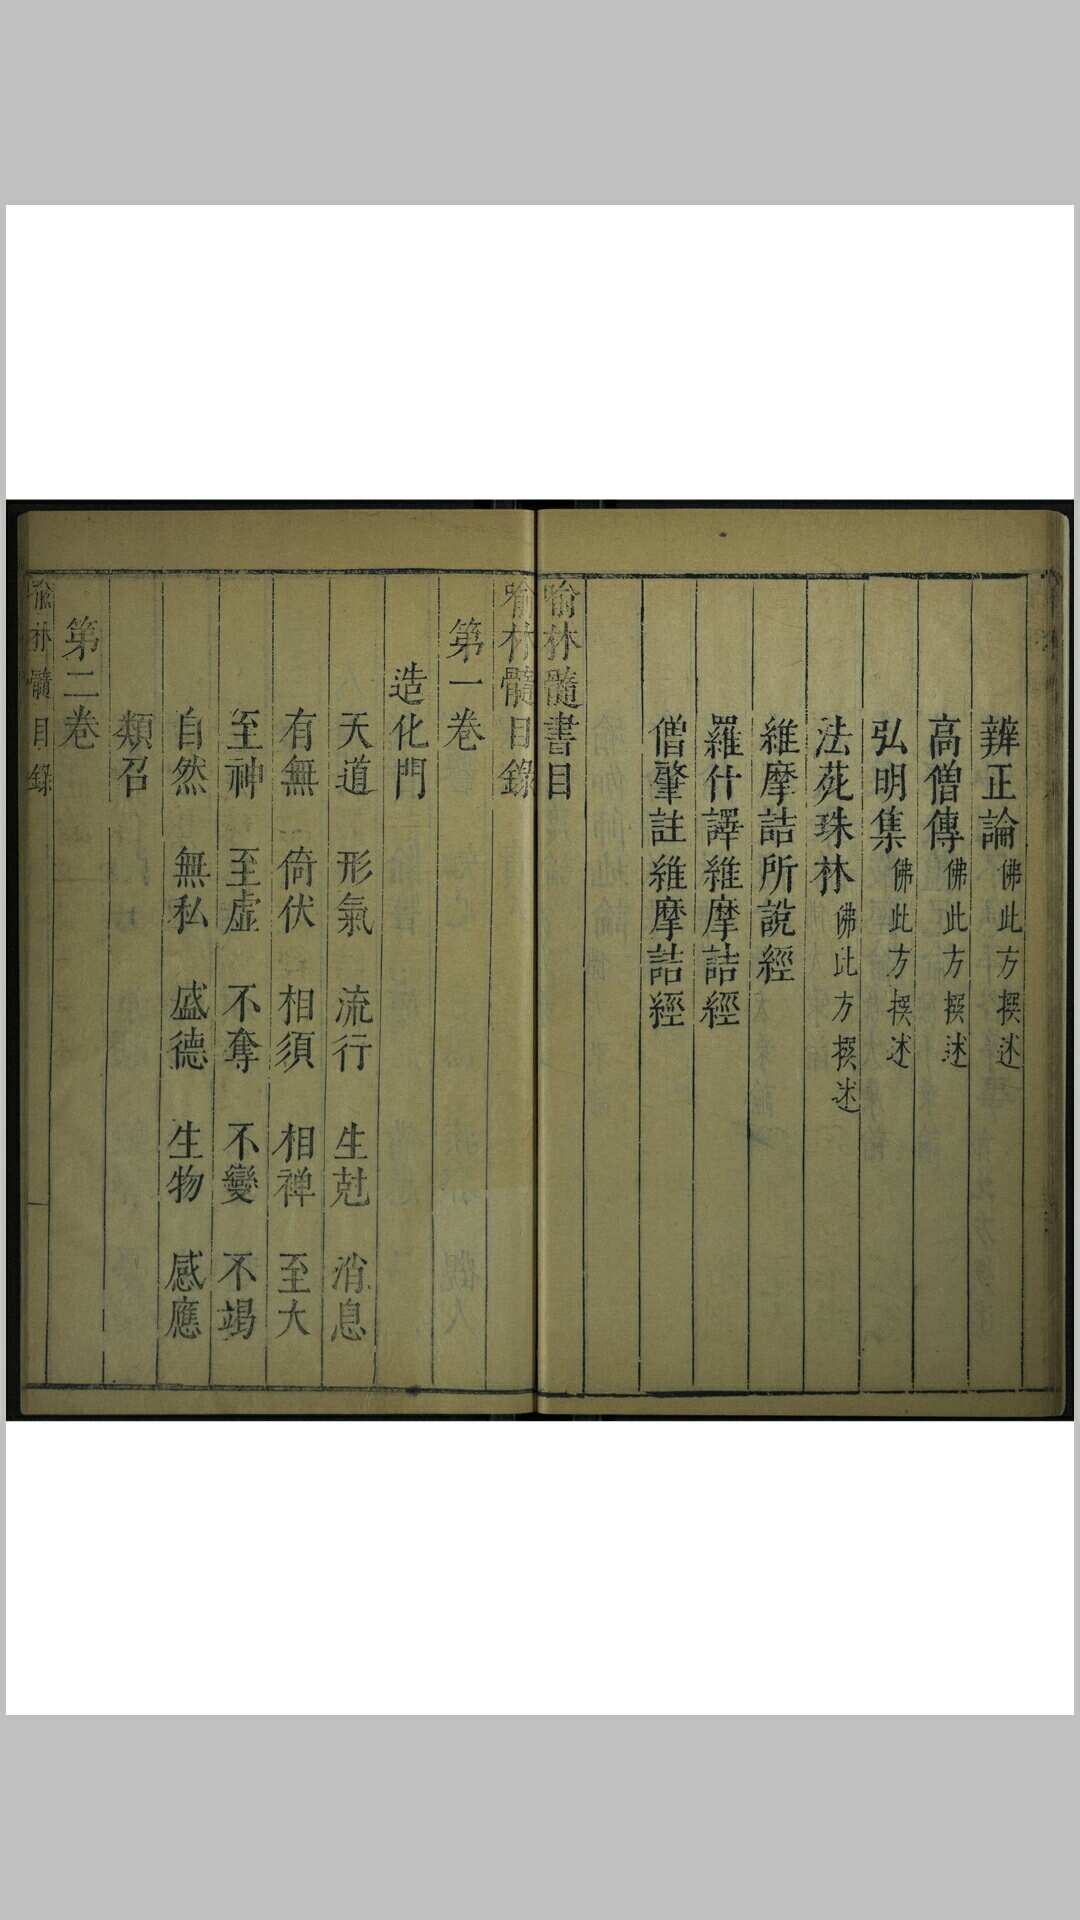 辨正論佛此方撰述
高僧傳佛此方撰述
弘明集佛此方撰述
法苑珠林佛此方撰述
維摩詰所說經
羅什譯維摩詰經
僧肇註維摩詰經
喻林髓書目
喻林髓目錄
第一卷
造化門
天道 形氣 流行 生尅 消息
有無 倚伏 相須 相禪 至大
至神 至虛 不奪 不變 不竭
自然 無私 盛德 生物 感應
類召
第二卷
喻林髓目錄